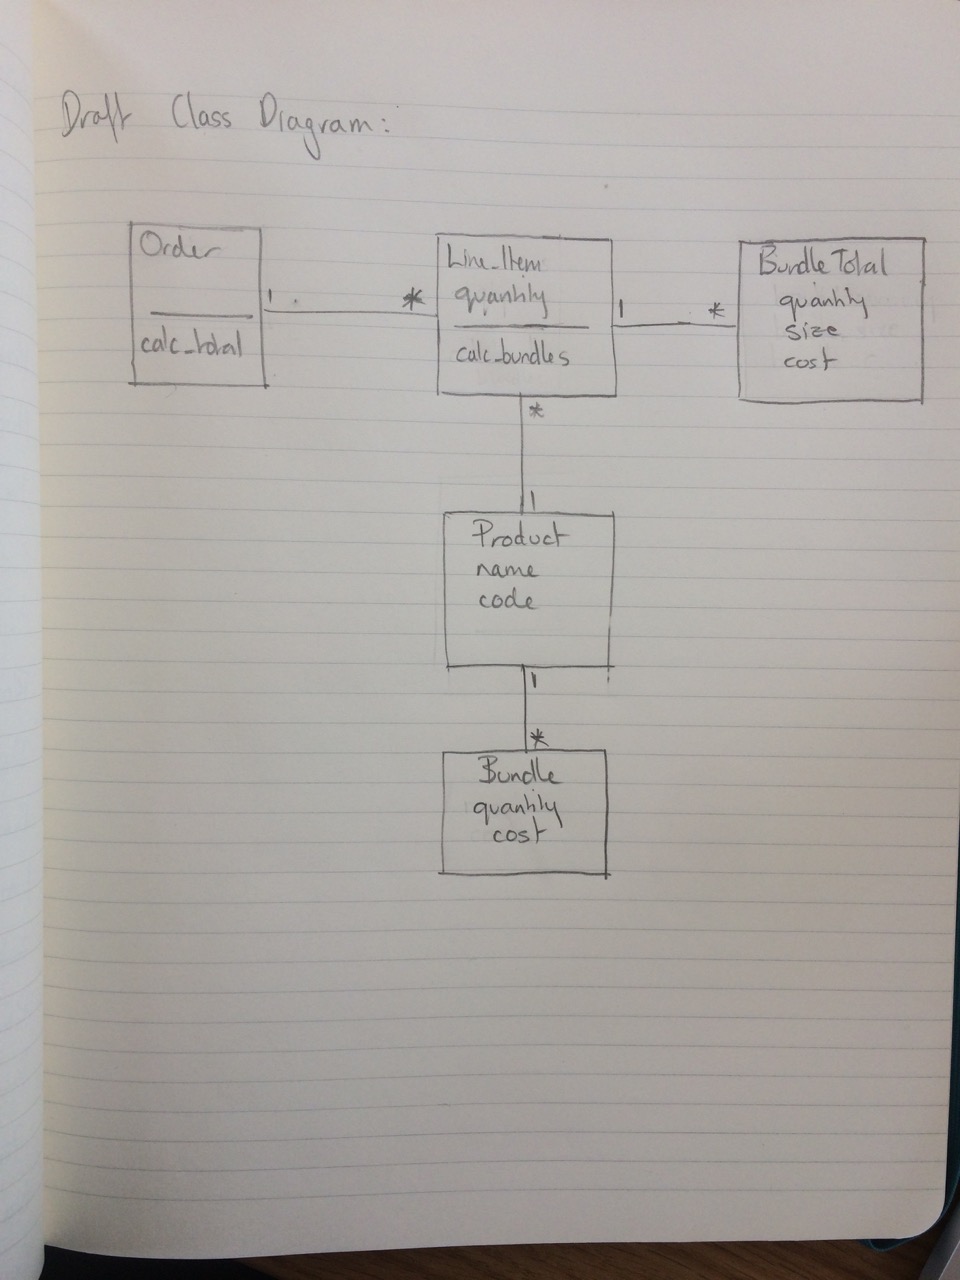 Draft Class Diagram:
Order
calc_total
1
*
Line_Item
quantity
calc_bundles
1
*
BundleTotal
quantity
size
cost
*
1
Product
name
code
1
*
Bundle
quantity
cost